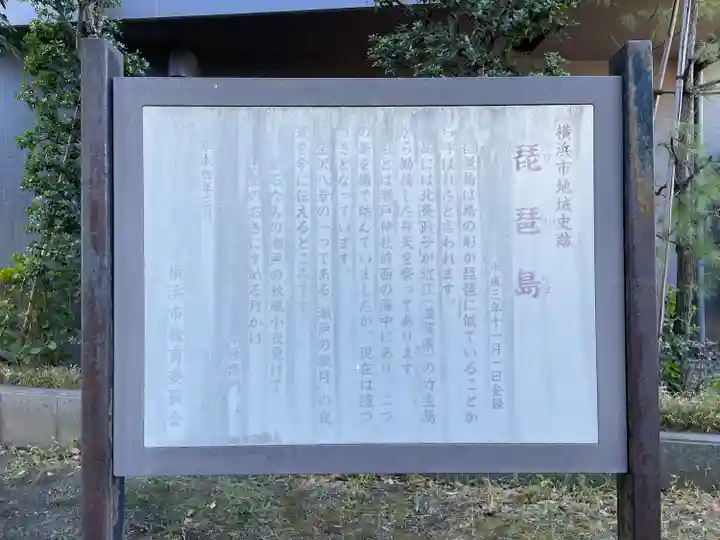 横浜市地域史跡
琵琶島
平成三年十一月一日登録
琵琶島は島の形が琵琶に似ていることか
ら呼ばれたと言われます。
島には北条政子が近江(滋賀県)の竹生島
から勧請した弁天を祭ってあります
とは瀬戸神社前面の海中にあり、二つ
の島を橋で結んでいましたが、現在は陸つ
づきとなっています。
金沢八景の一つである「瀬戸の秋月」の夜
景を今に伝えるところです。
の瀬戸の秋風小夜更けて
のおきにすめる月かけ
平成四年三月
横浜市教育委員会